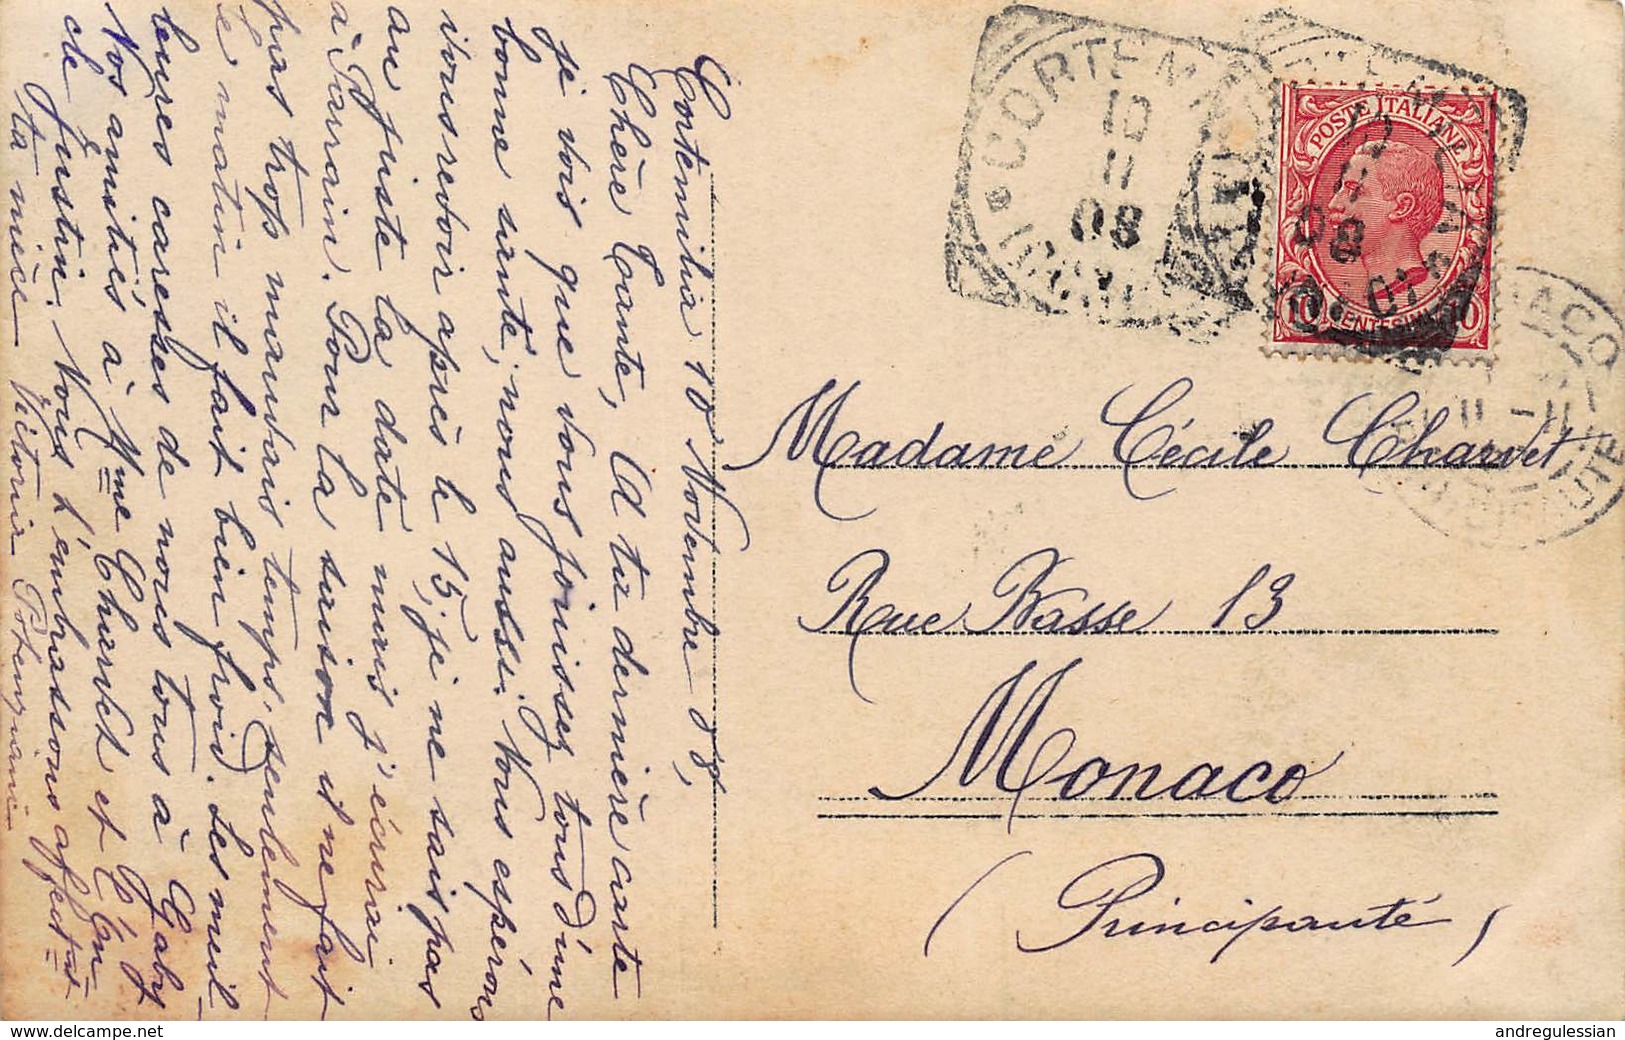 Cortemilia 10 Novembre 08,
Chère Tante, A ta dernière carte
je vois que vous jouissez tous d'une
bonne santé, nous aussi. Vous espérons
vous revoir après le 15, je ne sais pas
au juste la date mais j'écrirai
à Parrain. Pour la saison il ne fait
pas trop mauvais temps, seulement
ce matin il fait bien froid. Les meil-
leures caresses de nous tous à Gaby
Nos amitiés à Mme Charvet et
cle Justin. Nous t'embrassons affectnt
Ta nièce Victoria
POSTE ITALIANE
10 CENTESIMI 10
CORTEMILIA
10
11
08
Madame Cécile Charvet
Rue Basse 13
Monaco
(Principauté)
www.delcampe.net
andregulessian